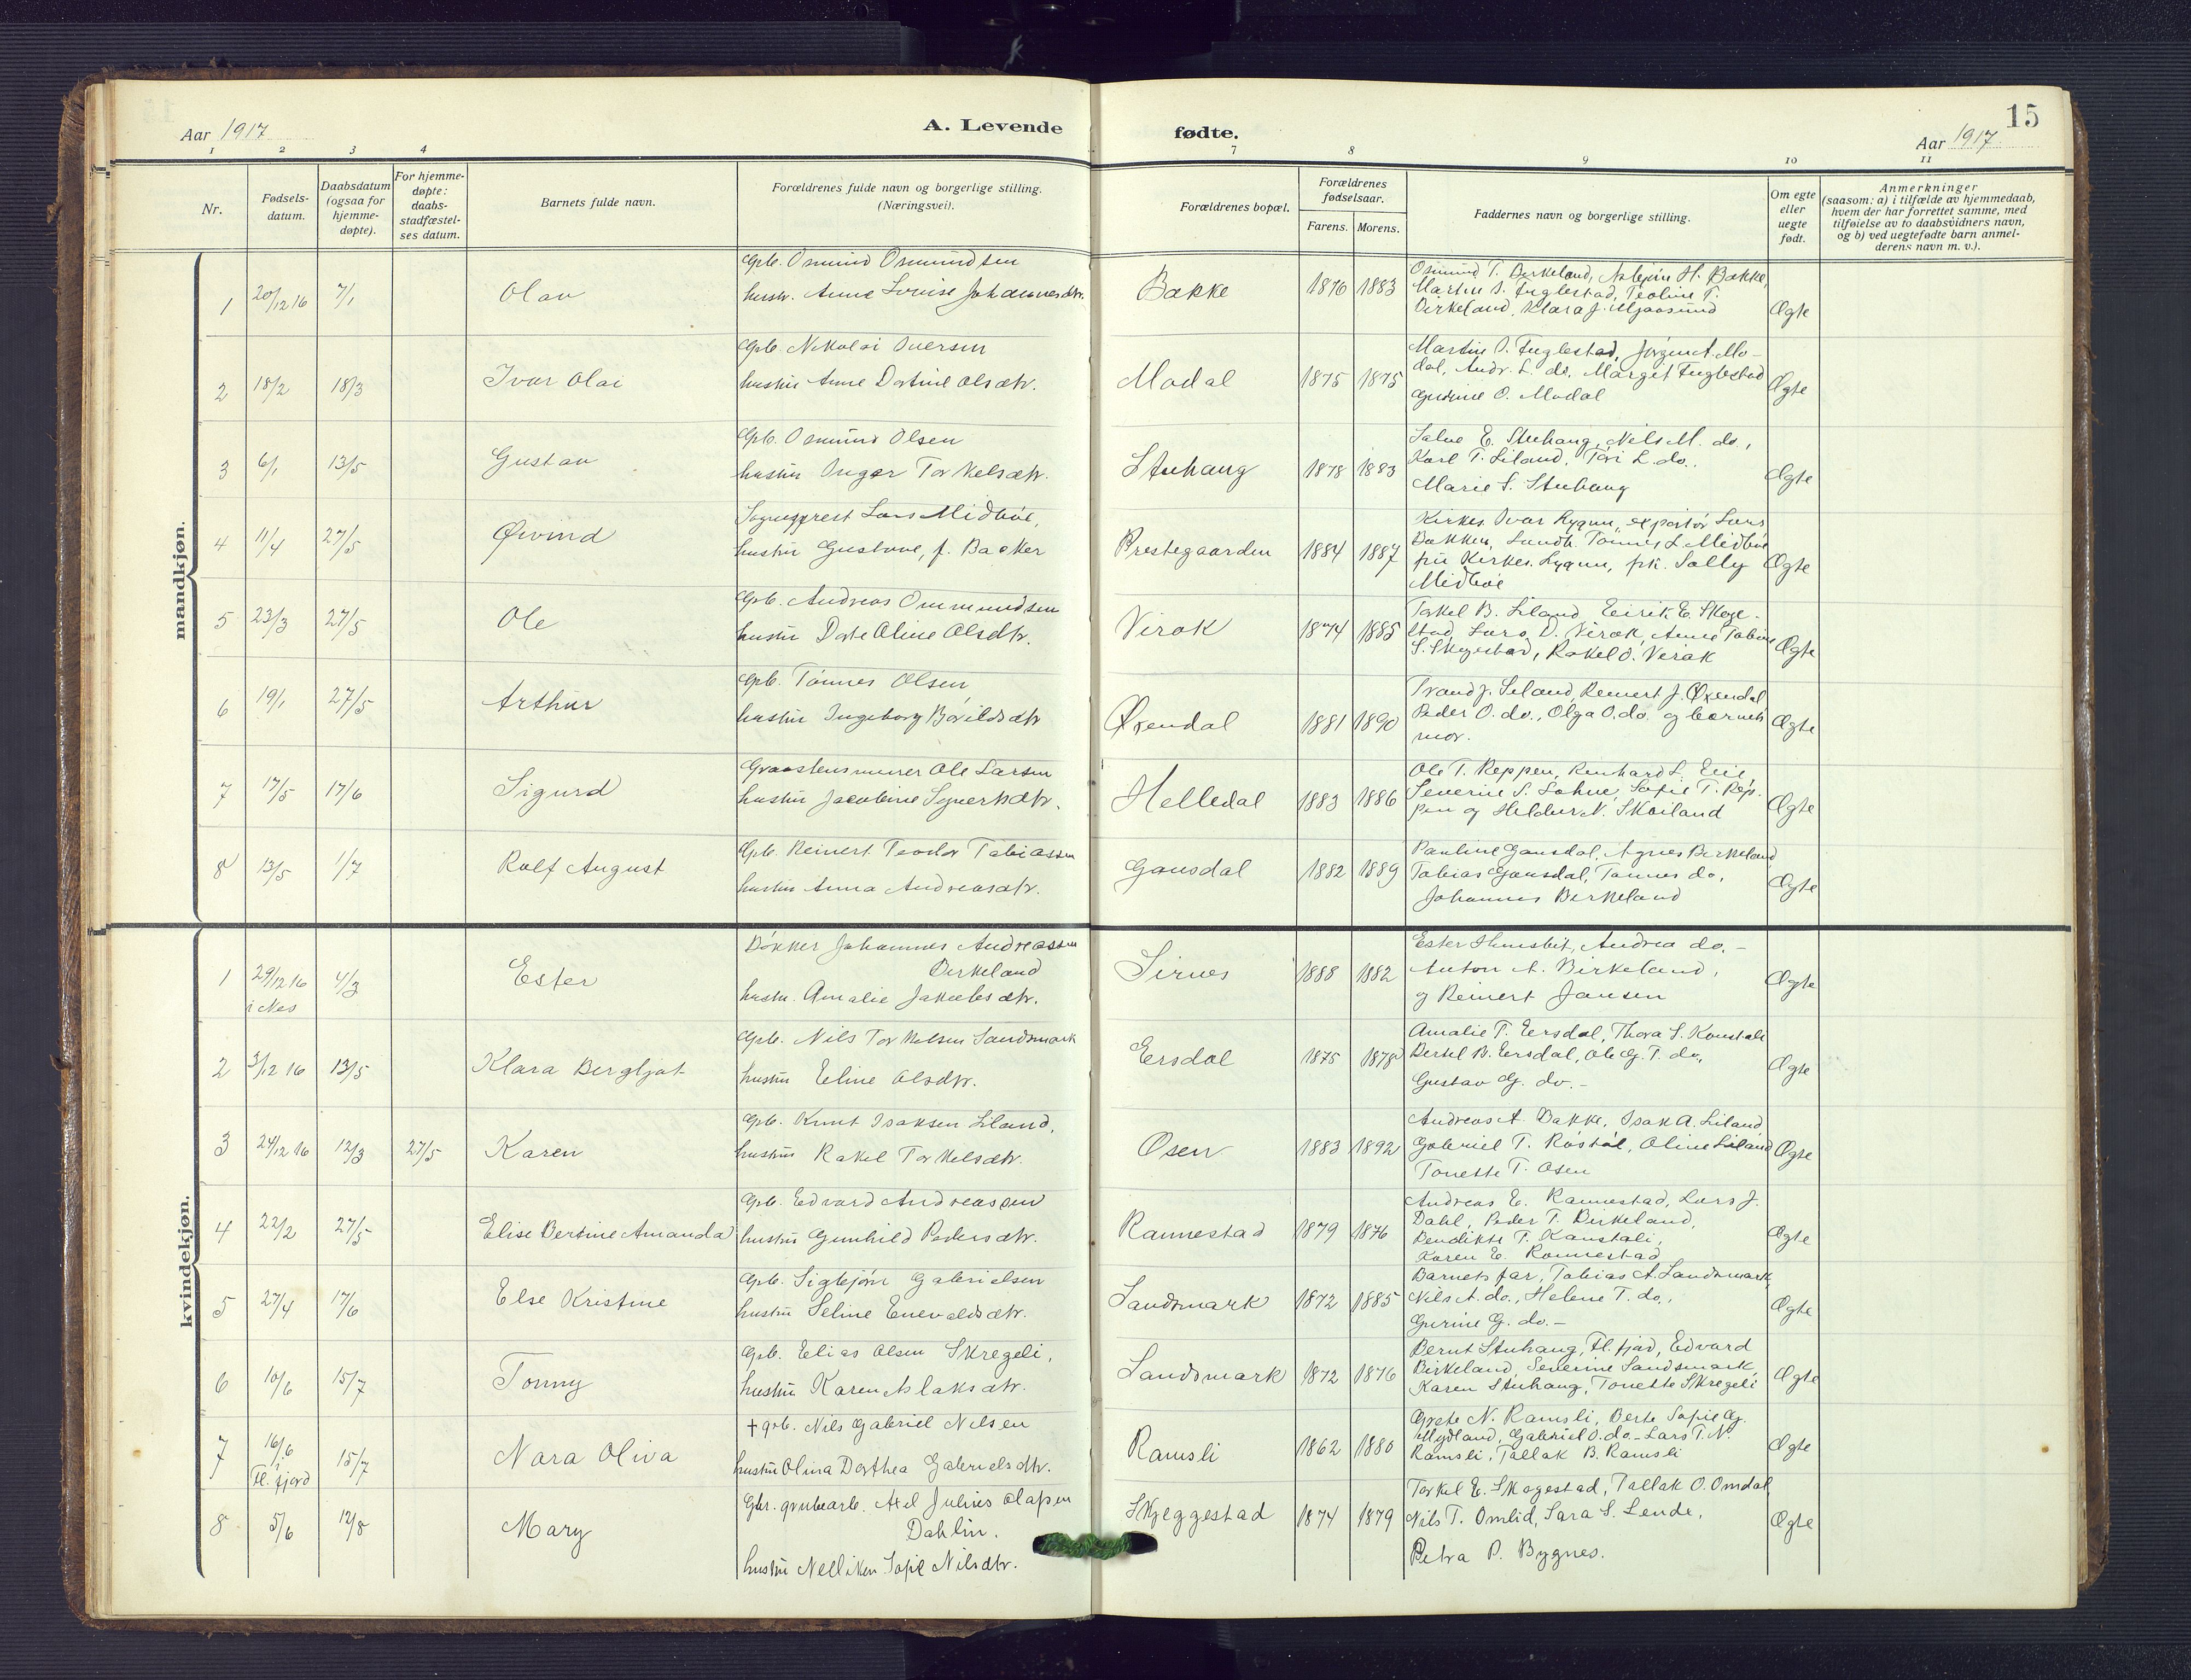 15
Aar 1917
A. Levende
fødte.
Aar 1917
1 2 3 4 7 8 9 10 11
Nr.
Fødsels-
datum.
Daabsdatum
(ogsaa for
hjemme-
døpte).
For hjemme-
døpte:
daabs-
stadfæstel-
ses datum.
Barnets fulde navn.
Forældrenes fulde navn og borgerlige stilling.
(Næringsvei).
Forældrenes bopæl.
Forældrenes
fødselsaar.
Farens. Morens.
Faddernes navn og borgerlige stilling.
Om egte
eller
uegte
født.
Anmerkninger
(saasom: a) i tilfælde av hjemmedaab,
hvem der har forrettet samme, med
tilføielse av to daabsvidners navn,
og b) ved uegtefødte barn anmel-
derens navn m. v.).
mandkjøn.
1 20/12 16 7/1 Olav
Gpb. Osmund Osmundsen
hustr. Anne Lovise Johannesdtr.
Bakke 1876 1883
Osmund T. Birkeland, Asbjørn H. Bakke,
Martin O. Fuglestad, Teoline T.
Birkeland, Klara J. Mjaasund
Ægte
2 18/2 18/3 Ivar Olai
Gpb. Nikolai Iversen
hustru Anne Dortine Olsdtr.
Modal 1875 1875
Martin O. Fuglestad, Jørgen A. Mo-
dal, Andr. L. do. Margit Fuglestad
Gurine O. Modal
Ægte
3 6/1 13/5 Gustav
Gpb. Osmund Olsen
hustru Inger Torkelsdtr.
Stuhaug 1878 1883
Salve E. Stuhaug, Nils M. do.,
Karl T. Liland, Tori L. do.,
Marie S. Stuhaug
Ægte
4 11/4 27/5 Øivind
Sogneprest Lars Midbøe,
hustru Gustave, f. Bakker
Prestegaarden 1884 1887
Kirkes. Ivar Lygnu, expeditør Lars
Bakken, Landh. Tønnes L. Midbøe
fru Kirkes. Lygnu, frk. Solly
Midbøe
Ægte
5 23/3 27/5 Ole
Gpb. Andreas Ommundsen
hustru Dorte Oline Olsdtr.
Virak 1874 1885
Torkel B. Liland, Eirik E. Skege-
stad, Lars O. Virak, Anne Tobine
S. Skegestad, Rakel O. Virak
Ægte
6 19/1 27/5 Arthur
Gpb. Tønnes Olsen
hustru Ingeborg Bårildsdtr
Øxendal 1881 1890
Trand J. Liland, Reinert J. Øxendal
Peder O. do., Olga O. do. og barnets
mor.
Ægte
7 17/5 17/6 Sigurd
Graastensmurer Ole Larsen
hustru Jacobine Syvertsdtr.
Helledal 1883 1886
Ole T. Reppen, Renhard L. Eie,
Severine S. Lohne, Sofie T. Rep-
pen og Heldur N. Skailand
Ægte
8 13/5 1/7 Rolf August
Gpb. Reinert Teodor Tobiassen
hustru Anna Andreasdtr.
Gausdal 1882 1889
Pauline Gausdal, Agnes Birkeland
Tobias Gausdal, Tønnes do,
Johannes Birkeland
Ægte
kvindekjøn.
1 29/12 16 4/3 Ester
i Nes
Bøkker Johannes Andreassen
Birkeland
hustr. Amalie Jakobsdtr.
Sirnes 1888 1882
Ester Hunsbit, Andrea do. -
Anton A. Birkeland,
og Reinert Jansen
Ægte
2 3/12 16 13/5 Klara Bergljot
Gpb. Nils Torkelsen Sandsmark
hustru Eline Olsdtr.
Eersdal 1875 1878
Amalie T. Eersdal, Thora S. Konstali
Bertel B. Eersdal, Ole G. T. do,
Gustav G. do. -
Ægte
3 24/12 16 12/3 27/5 Karen
Gpb. Knut Isaksen Liland,
hustru Rakel Torkelsdtr.
Osen 1883 1892
Andreas A. Bakke, Isak A. Liland
Gabriel T. Røstøl, Oline Liland
Tonette T. Osen
Ægte
4 22/2 27/5 Elise Bertine Amanda
Gpb. Edvard Andreassen
hustru Gunhild Pedersdtr.
Rannestad 1879 1876
Andreas E. Rannestad, Lars J.
Dahl, Peder T. Birkeland,
Bendikte T. Konstali,
Karen E. Rannestad
Ægte
5 27/4 17/6 Else Kristine
Gpb. Sigbjørn Gabrielsen
hustru Seline Enevaldsdtr.
Sandsmark 1872 1885
Barnets far, Tobias A. Sandsmark,
Nils A. do., Helene T. do.,
Gurine G. do. -
Ægte
6 10/6 15/7 Tonny
Gpb. Elias Olsen Skregeli,
hustru Karen Aslaksdtr.
Sandsmark 1872 1876
Bernt Stuhaug, Fl.fjord, Edvard
Birkeland, Severine Sandsmark,
Karen Stuhaug, Tonette Skregeli
Ægte
7 16/6 15/7 Nora Oliva
i
Fl.fjord
† gpb. Nils Gabriel Nilsen
hustru Olina Dorthea Gabrielsdtr.
Ramsli 1862 1880
Grete N. Ramsli, Berte Sofie G.
Mydland, Gabriel O. do - Lars T. N.
Ramsli, Tallak B. Ramsli
Ægte
8 5/6 12/8 Mary
Gbr. grubearb. Axel Julius Olafsen
Dahlin.
hustru Nelliken Sofie Nilsdtr.
Skjeggestad 1874 1879
Torkel E. Skegestad, Tallak O. Omdal,
Nils T. Omlid, Sara S. Lende,
Petra P. Bygnes.
Ægte